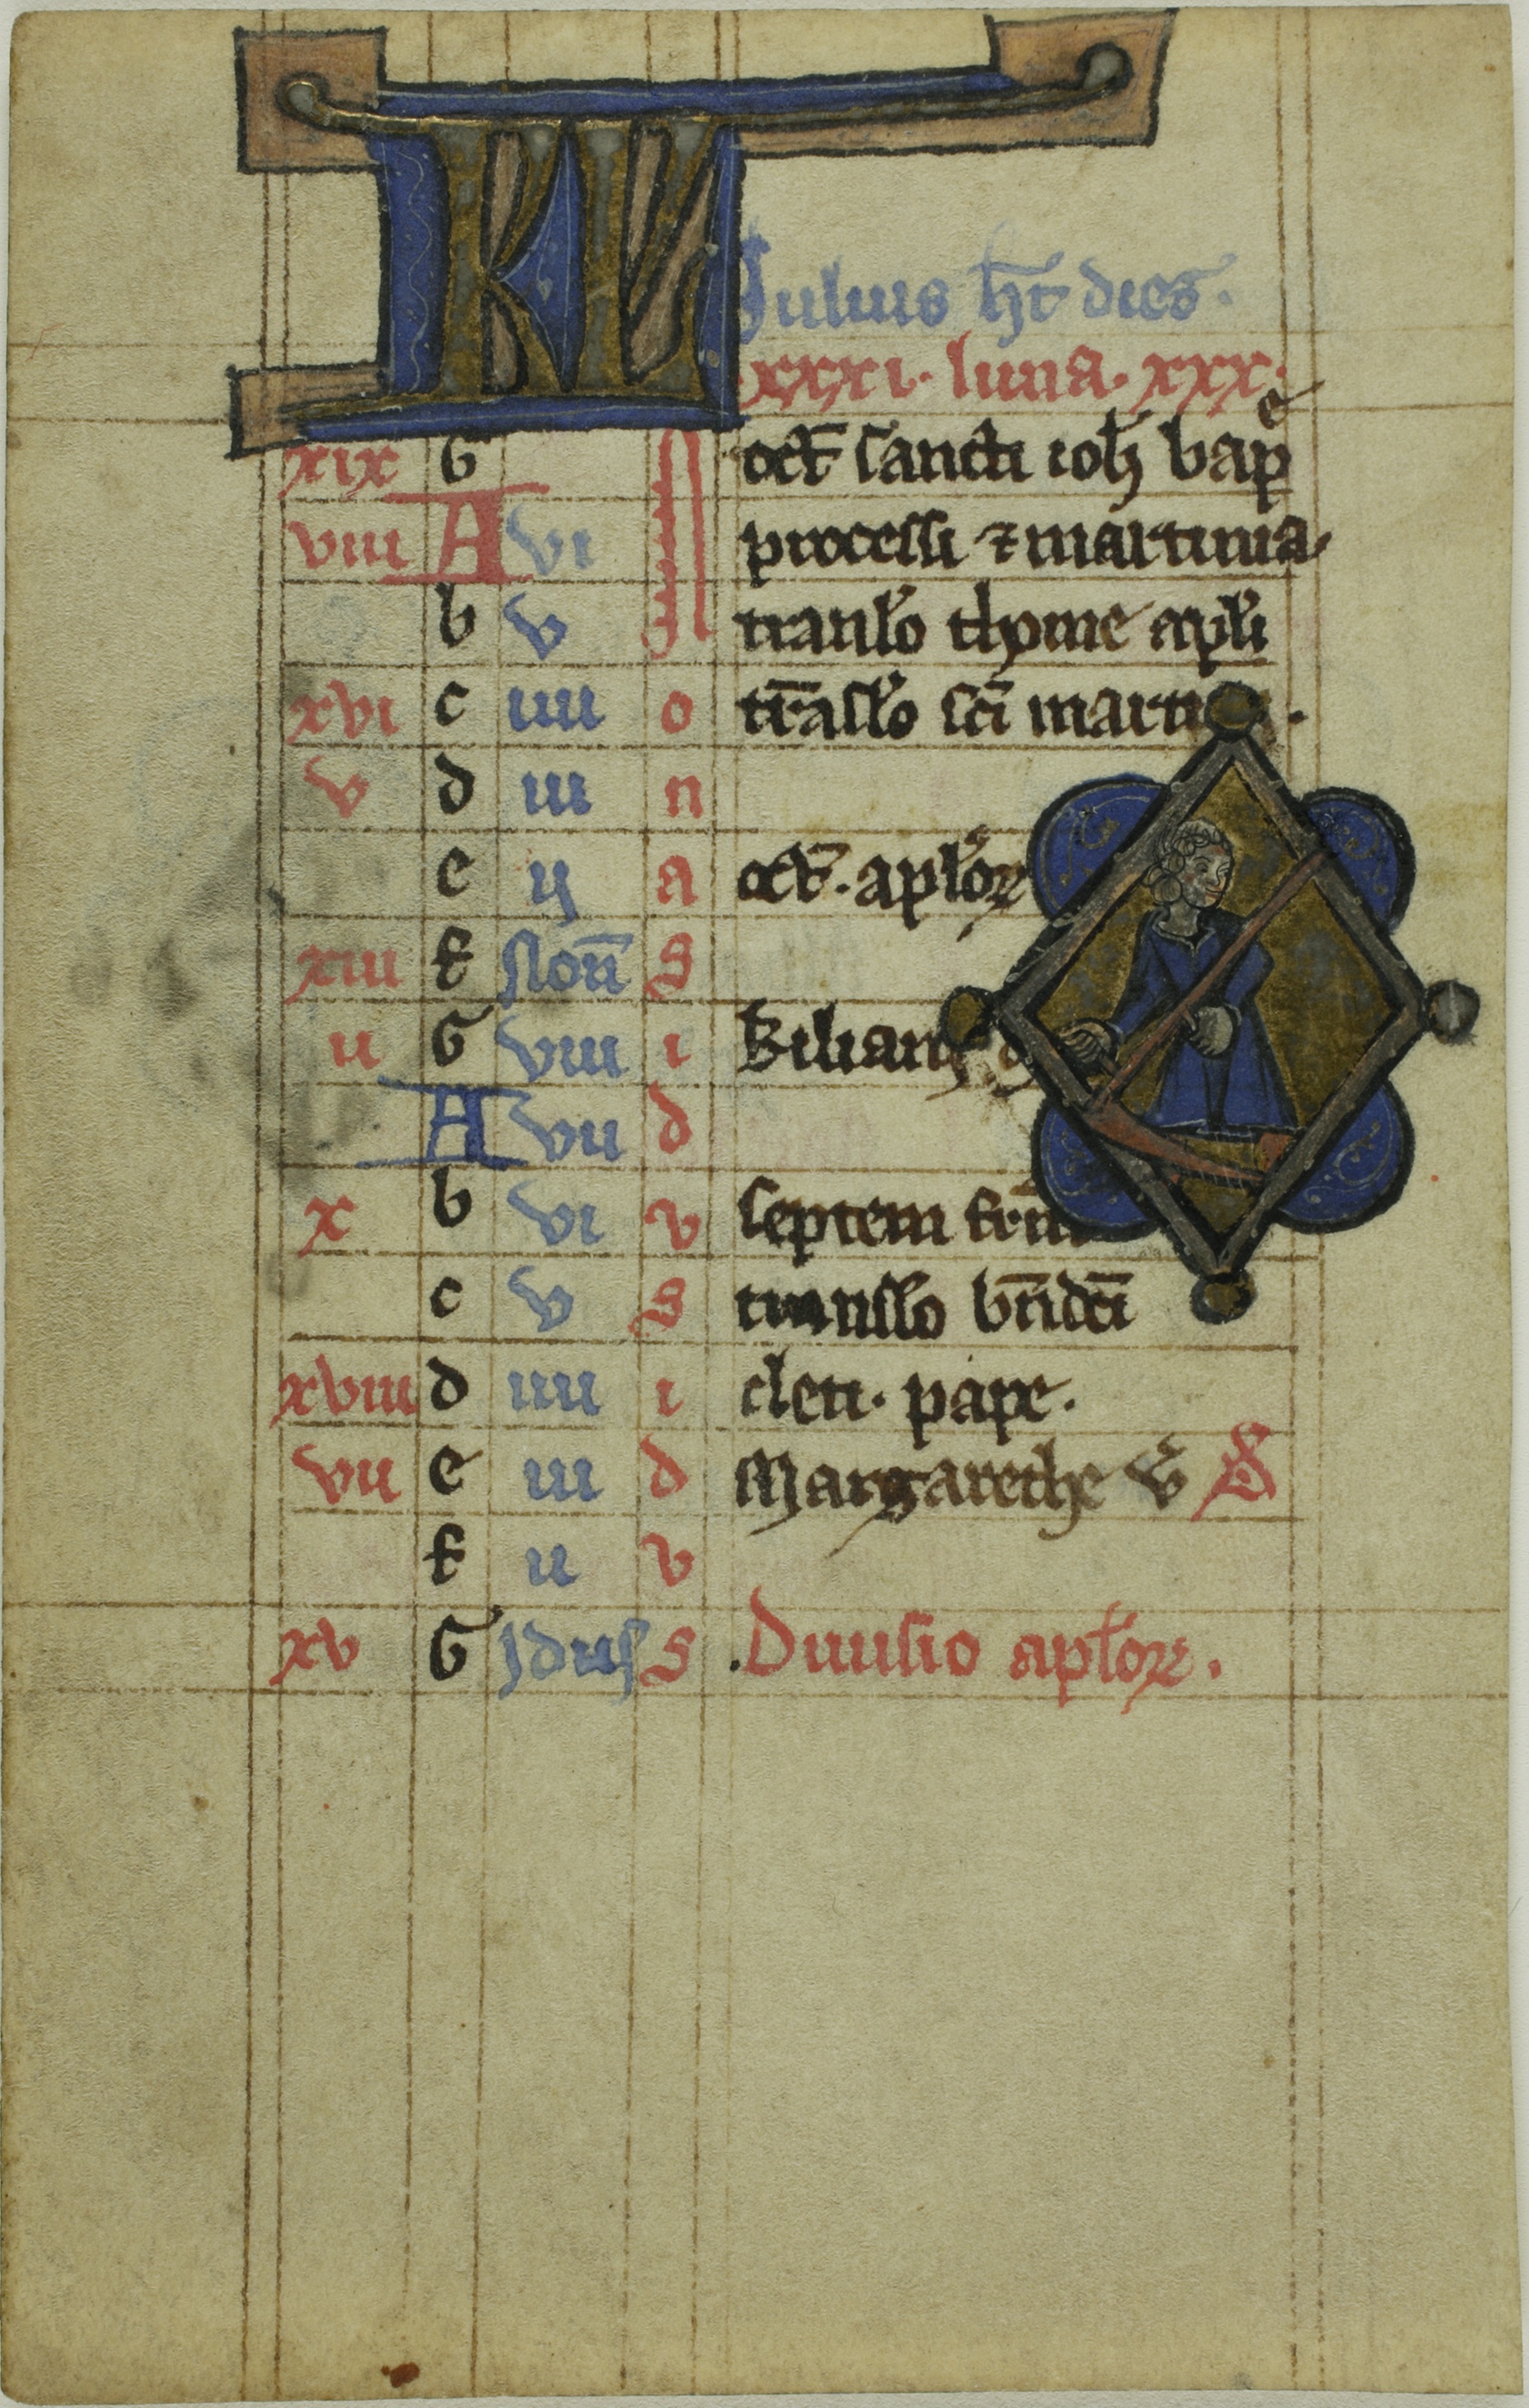 KL
Iulius ht dies.
xxxi. luna. xxx.
xix G N oct sancti ioh bape
viii A vi processi ⁊ martinia
b v translo thome apli
xvi c iiii o traslo sci marti .
v d iii n
e ij a oct. aploꝝ
xiii f Non s
ii G viii i kiliani
A vii d
x b vi v septem frm
c v s translo bndcti
xviii d iiii i cleti. pape.
vii e iii d Margarethe v S
f ii v
xv G Idus s .Diuisio aploꝝ.